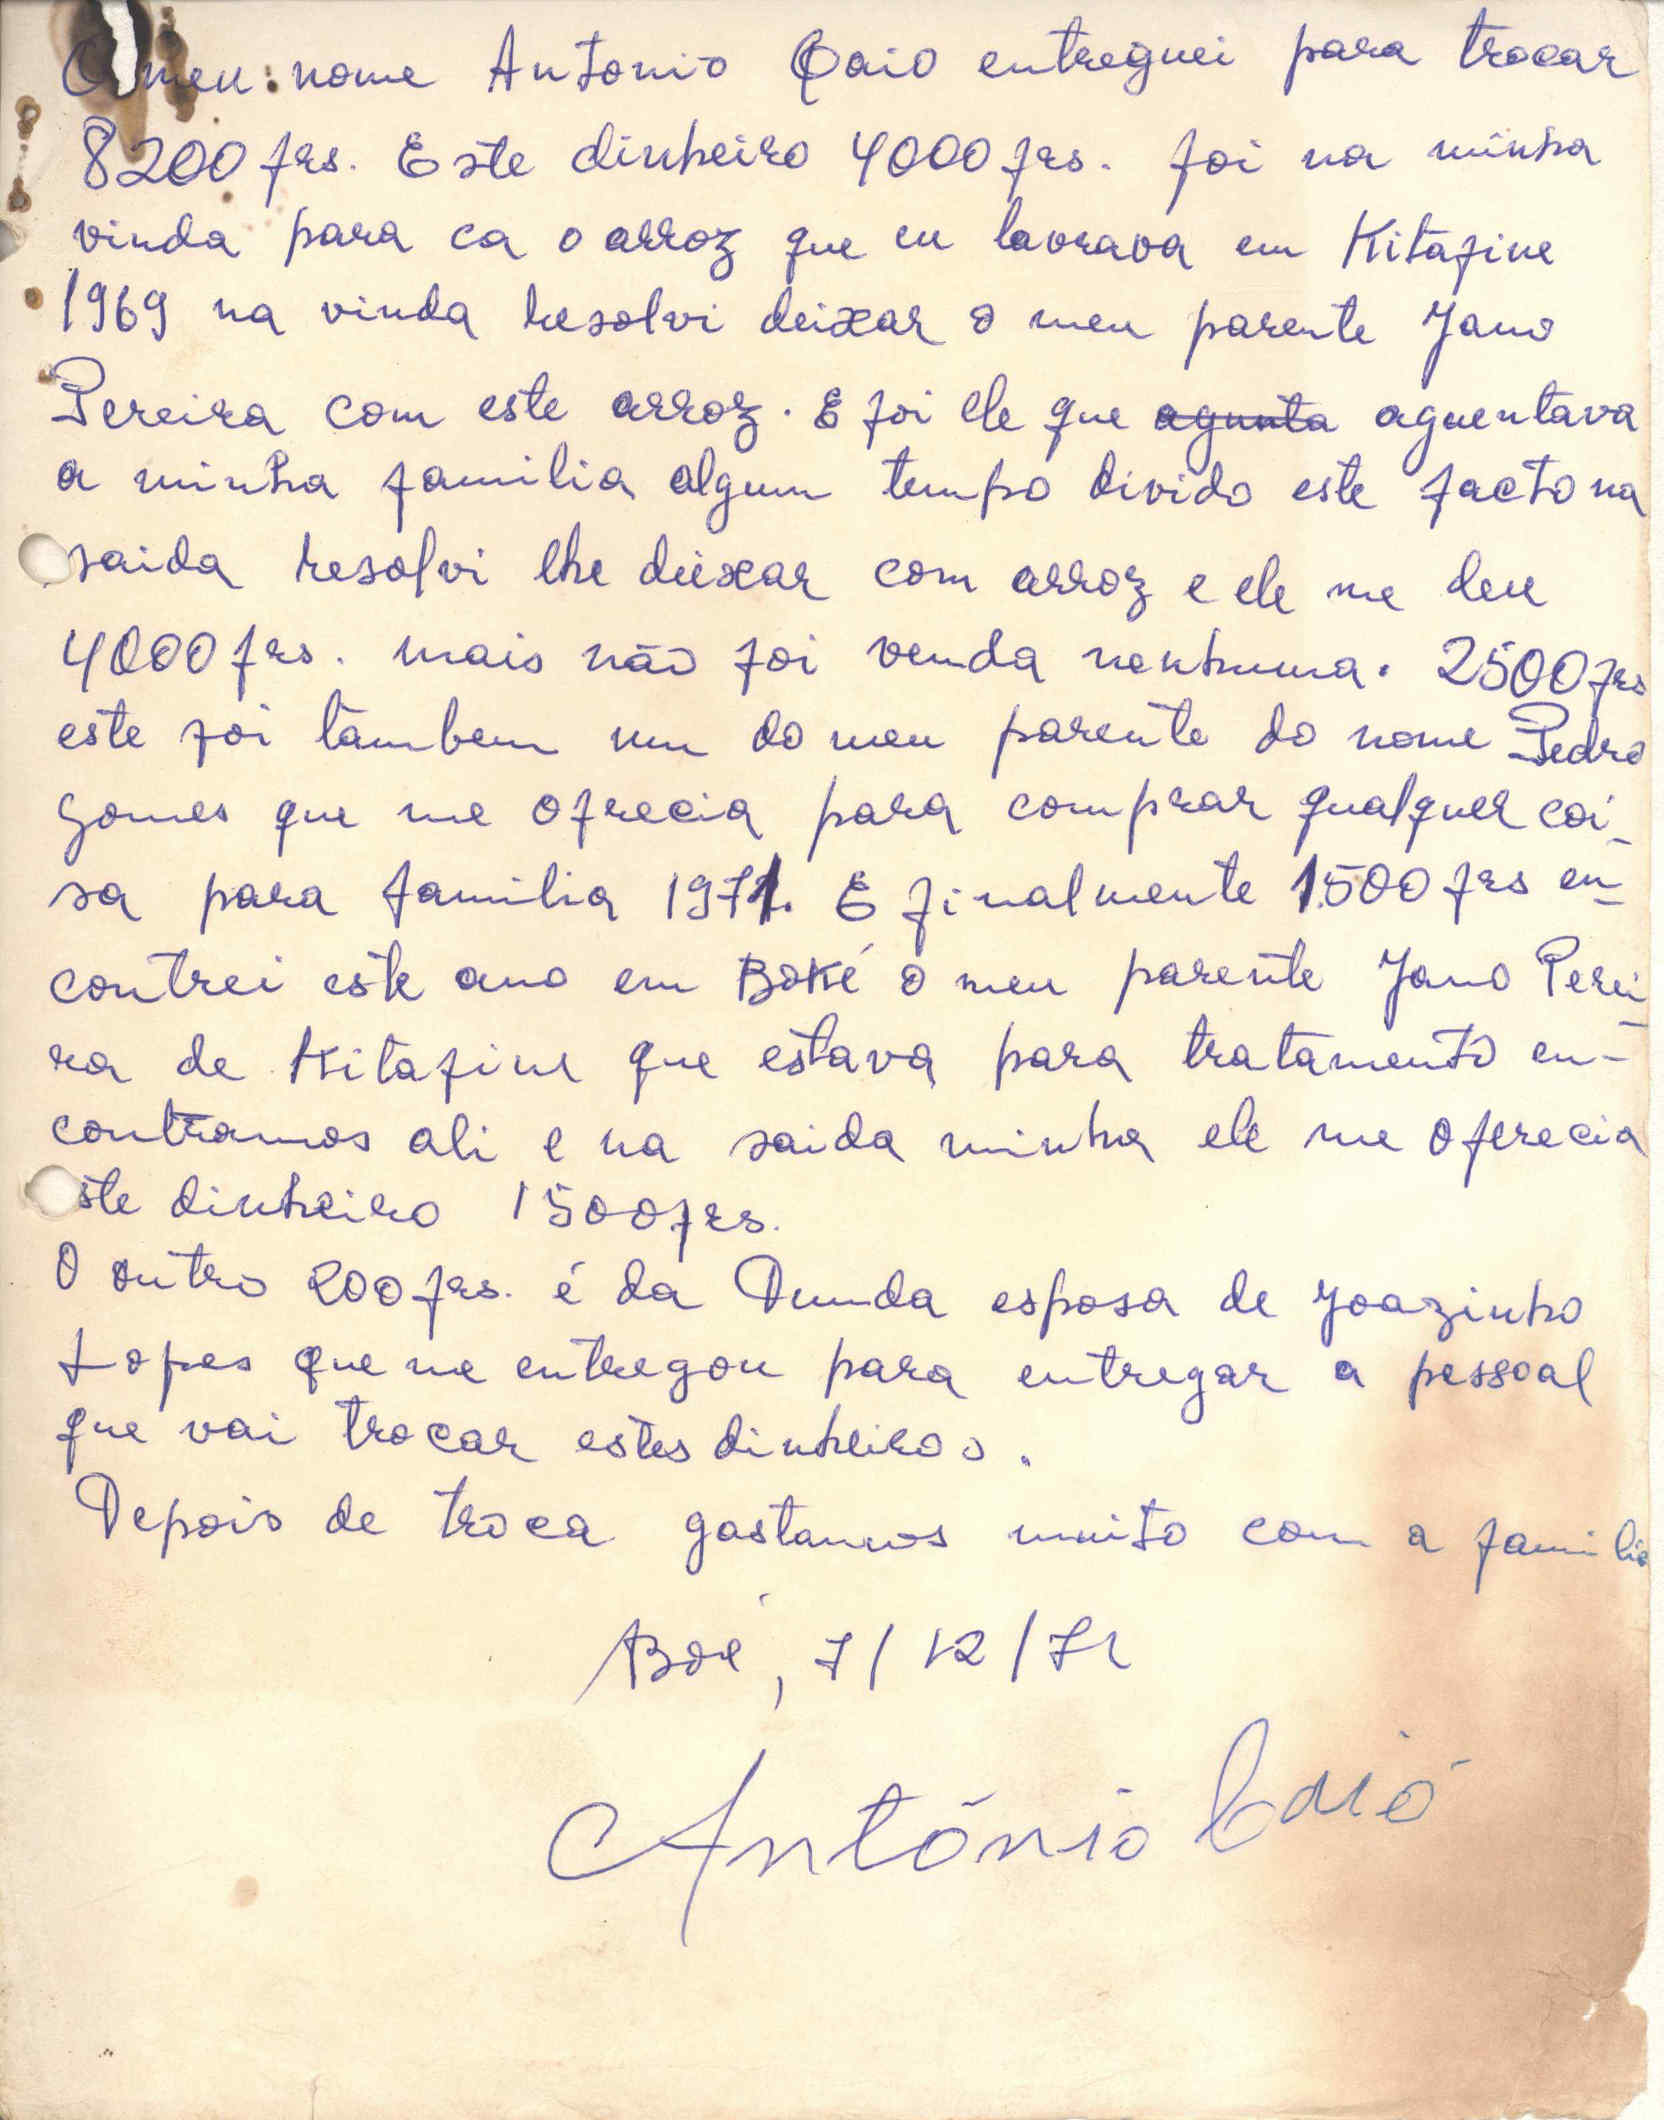 O meu nome Antonio Caio entreguei para trocar
8200 frs. Este dinheiro 4000 frs. foi na minha
vinda para ca o arroz que eu lavrava em Kitafine
1969 na vinda resolvi deixar o meu parente Jano
Pereira com este arroz. E foi ele que agunta aguentava
a minha familia algum tempo divido este facto na
saida resolvi lhe deixar com arroz e ele me deu
4000 frs. mais não foi venda nenhuma. 2500 frs
este foi tambem um do meu parente do nome Pedro
Gomes que me ofrecia para comprar qualquer coi-
sa para familia 1971. E finalmente 1.500 frs en-
contrei este ano em Boké o meu parente Jano Perei-
ra de Kitafine que estava para tratamento en-
contramos ali e na saida minha ele me oferecia
ste dinheiro 1500 frs.
O outro 200 frs. é da Dunda esposa de Joazinho
Lopes que me entregou para entregar a pessoal
que vai trocar estes dinheiros.
Depois de troca gastamos muito com a familia
Boé, 7/12/71
António Caió